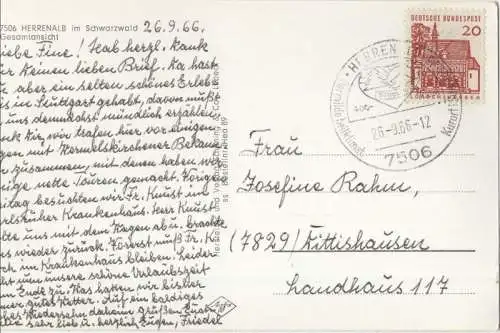 7506 HERRENALB im Schwarzwald 26.9.66.
Gesamtansicht
iebe Fine! Hab herzl. Dank
r Deinen lieben Brief. Du hast
a aber ein selten schönes Erleb-
is in Stuttgart gehabt, davon mußt
uns demnächst mündlich erzählen
enk Dir, wir trafen hier vor einigen
agen mit Hermelskirchener Bekann
zusammen, mit denen wir
inige nette Touren gemacht. Vorigen
itag besuchten wir Fr. Knust im
arlsruher Krankenhaus. Herr Knust
lte uns mit dem Wagen ab u. brachte
s wieder zurück. Vorerst muß Fr. K.
ch im Krankenhaus bleiben. Leider
ht nun unsere schöne Urlaubszeit
m Ende zu. Was hatten wir bisher
mer gutes Wetter. Auf ein baldiges
Wiedersehen daheim grüßen Euch
lle sehr lieb u. herzlich Eugen, Friedel
DEUTSCHE BUNDESPOST
20
HERREN
26.-9.66-12
Kurort
7506
Frau
Josefine Rahm,
(7829) Kittishausen
Landhaus 117